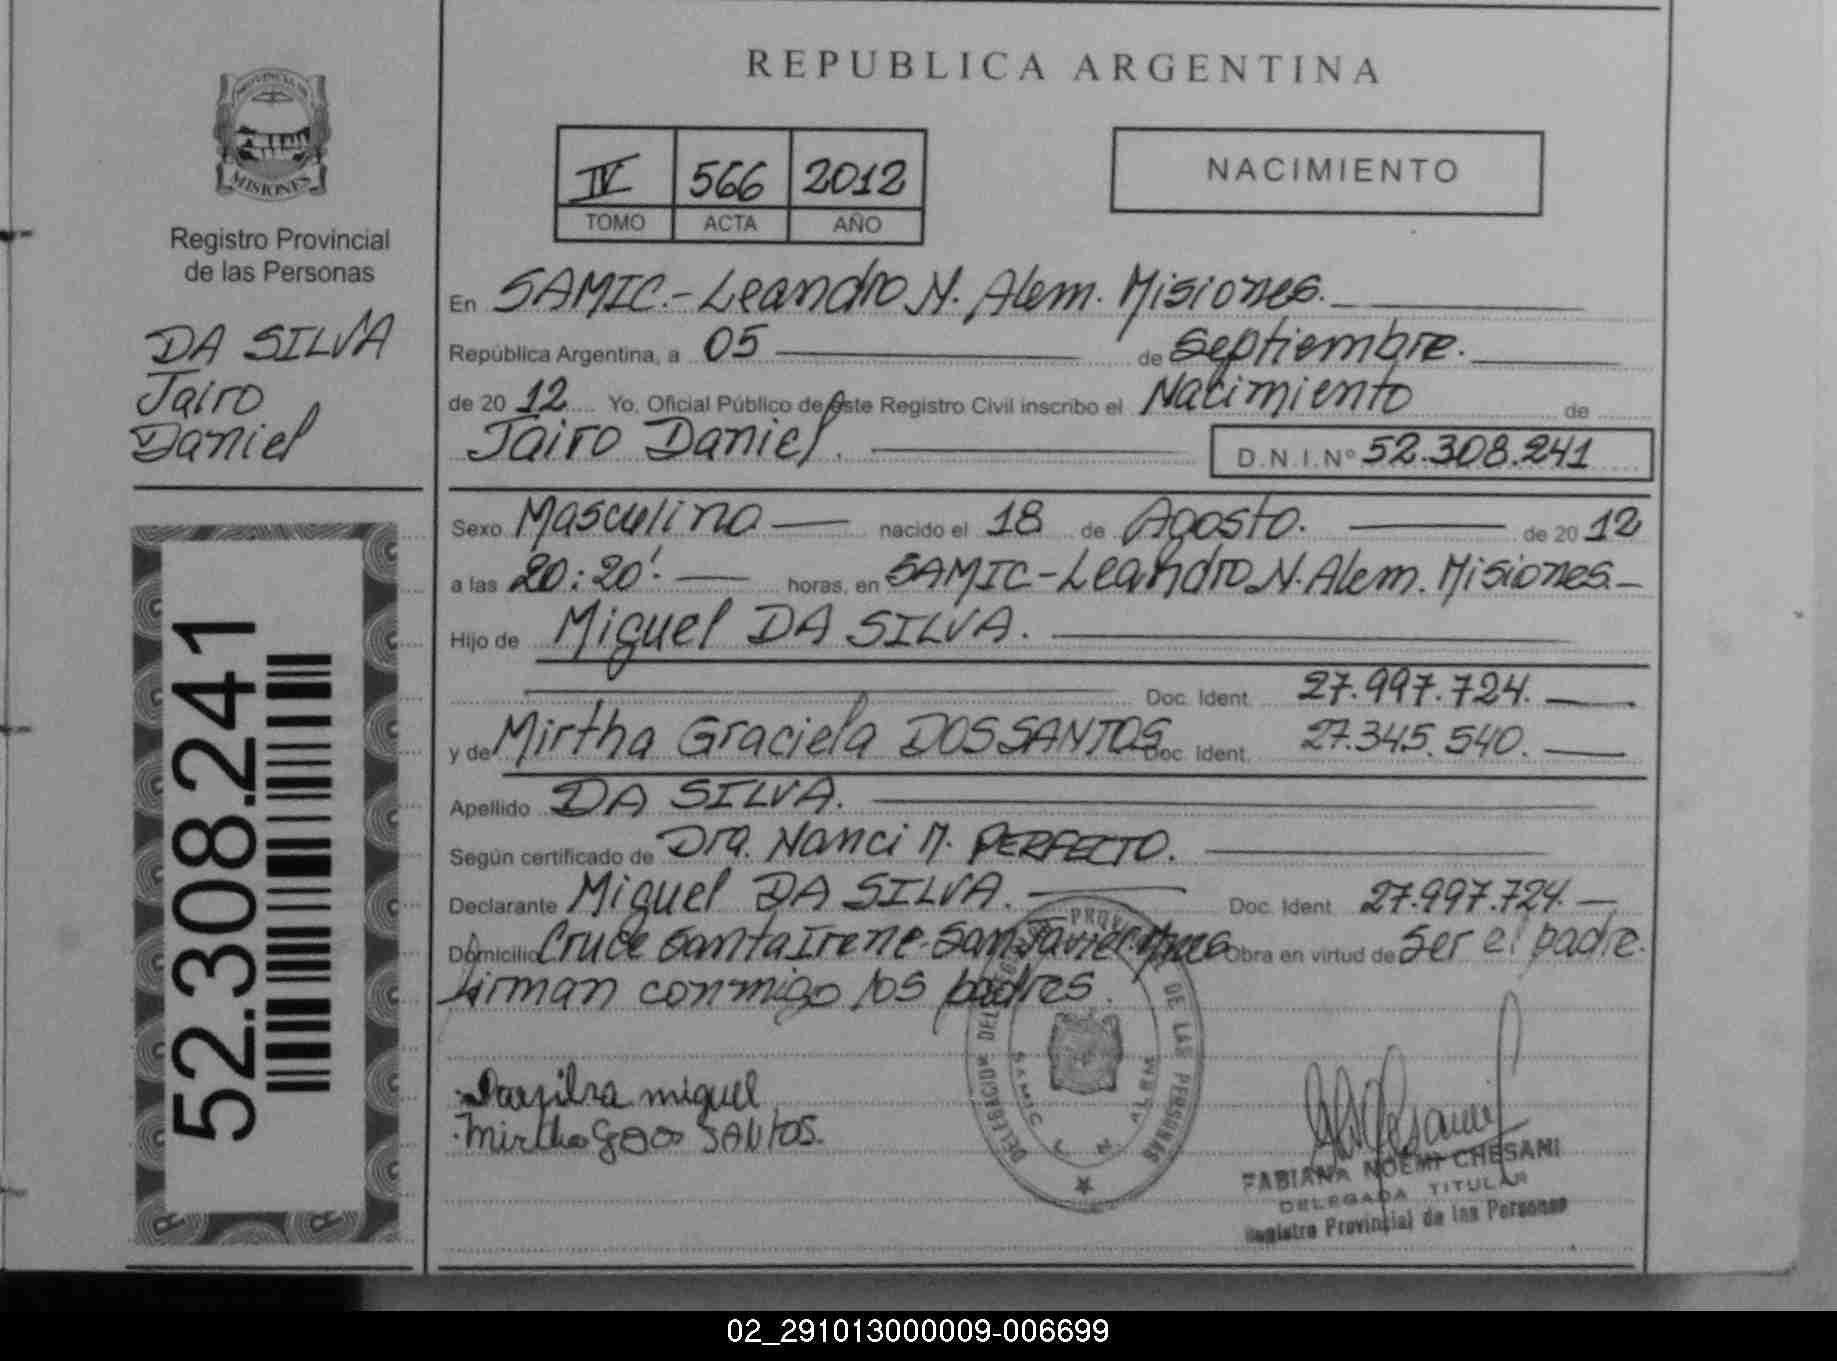 PROVINCIA DE
MISIONES
Registro Provincial
de las Personas
DA SILVA
Jairo
Daniel
52.308.241
REPUBLICA ARGENTINA
IV 566 2012
TOMO ACTA AÑO
NACIMIENTO
En SAMIC.- Leandro N. Alem. Misiones.
República Argentina, a 05 de Septiembre.
de 20 12 Yo, Oficial Público de este Registro Civil inscribo el Nacimiento de
Jairo Daniel. D.N.I.Nº 52.308.241
Sexo Masculino nacido el 18 de Agosto. de 20 12
a las 20:20'. horas, en SAMIC - Leandro N. Alem. Misiones.
Hijo de Miguel DA SILVA.
Doc. Ident. 27.997.724.
y de Mirtha Graciela DOS SANTOS Doc. Ident. 27.345.540.
Apellido DA SILVA.
Según certificado de Dra. Nanci M. PERFECTO.
Declarante Miguel DA SILVA. Doc. Ident. 27.997.724.
Domicilio Cruce Santa Irene-San Javier Mnes Obra en virtud de Ser el padre.
firman conmigo los padres.
Dasilva miguel
Mirtha SANTOS.
DE LAS PERSONAS
SAMIC ALEM
FABIANA NOEMI CHESANI
DELEGADA TITULAR
Registro Provincial de las Personas
02_291013000009-006699